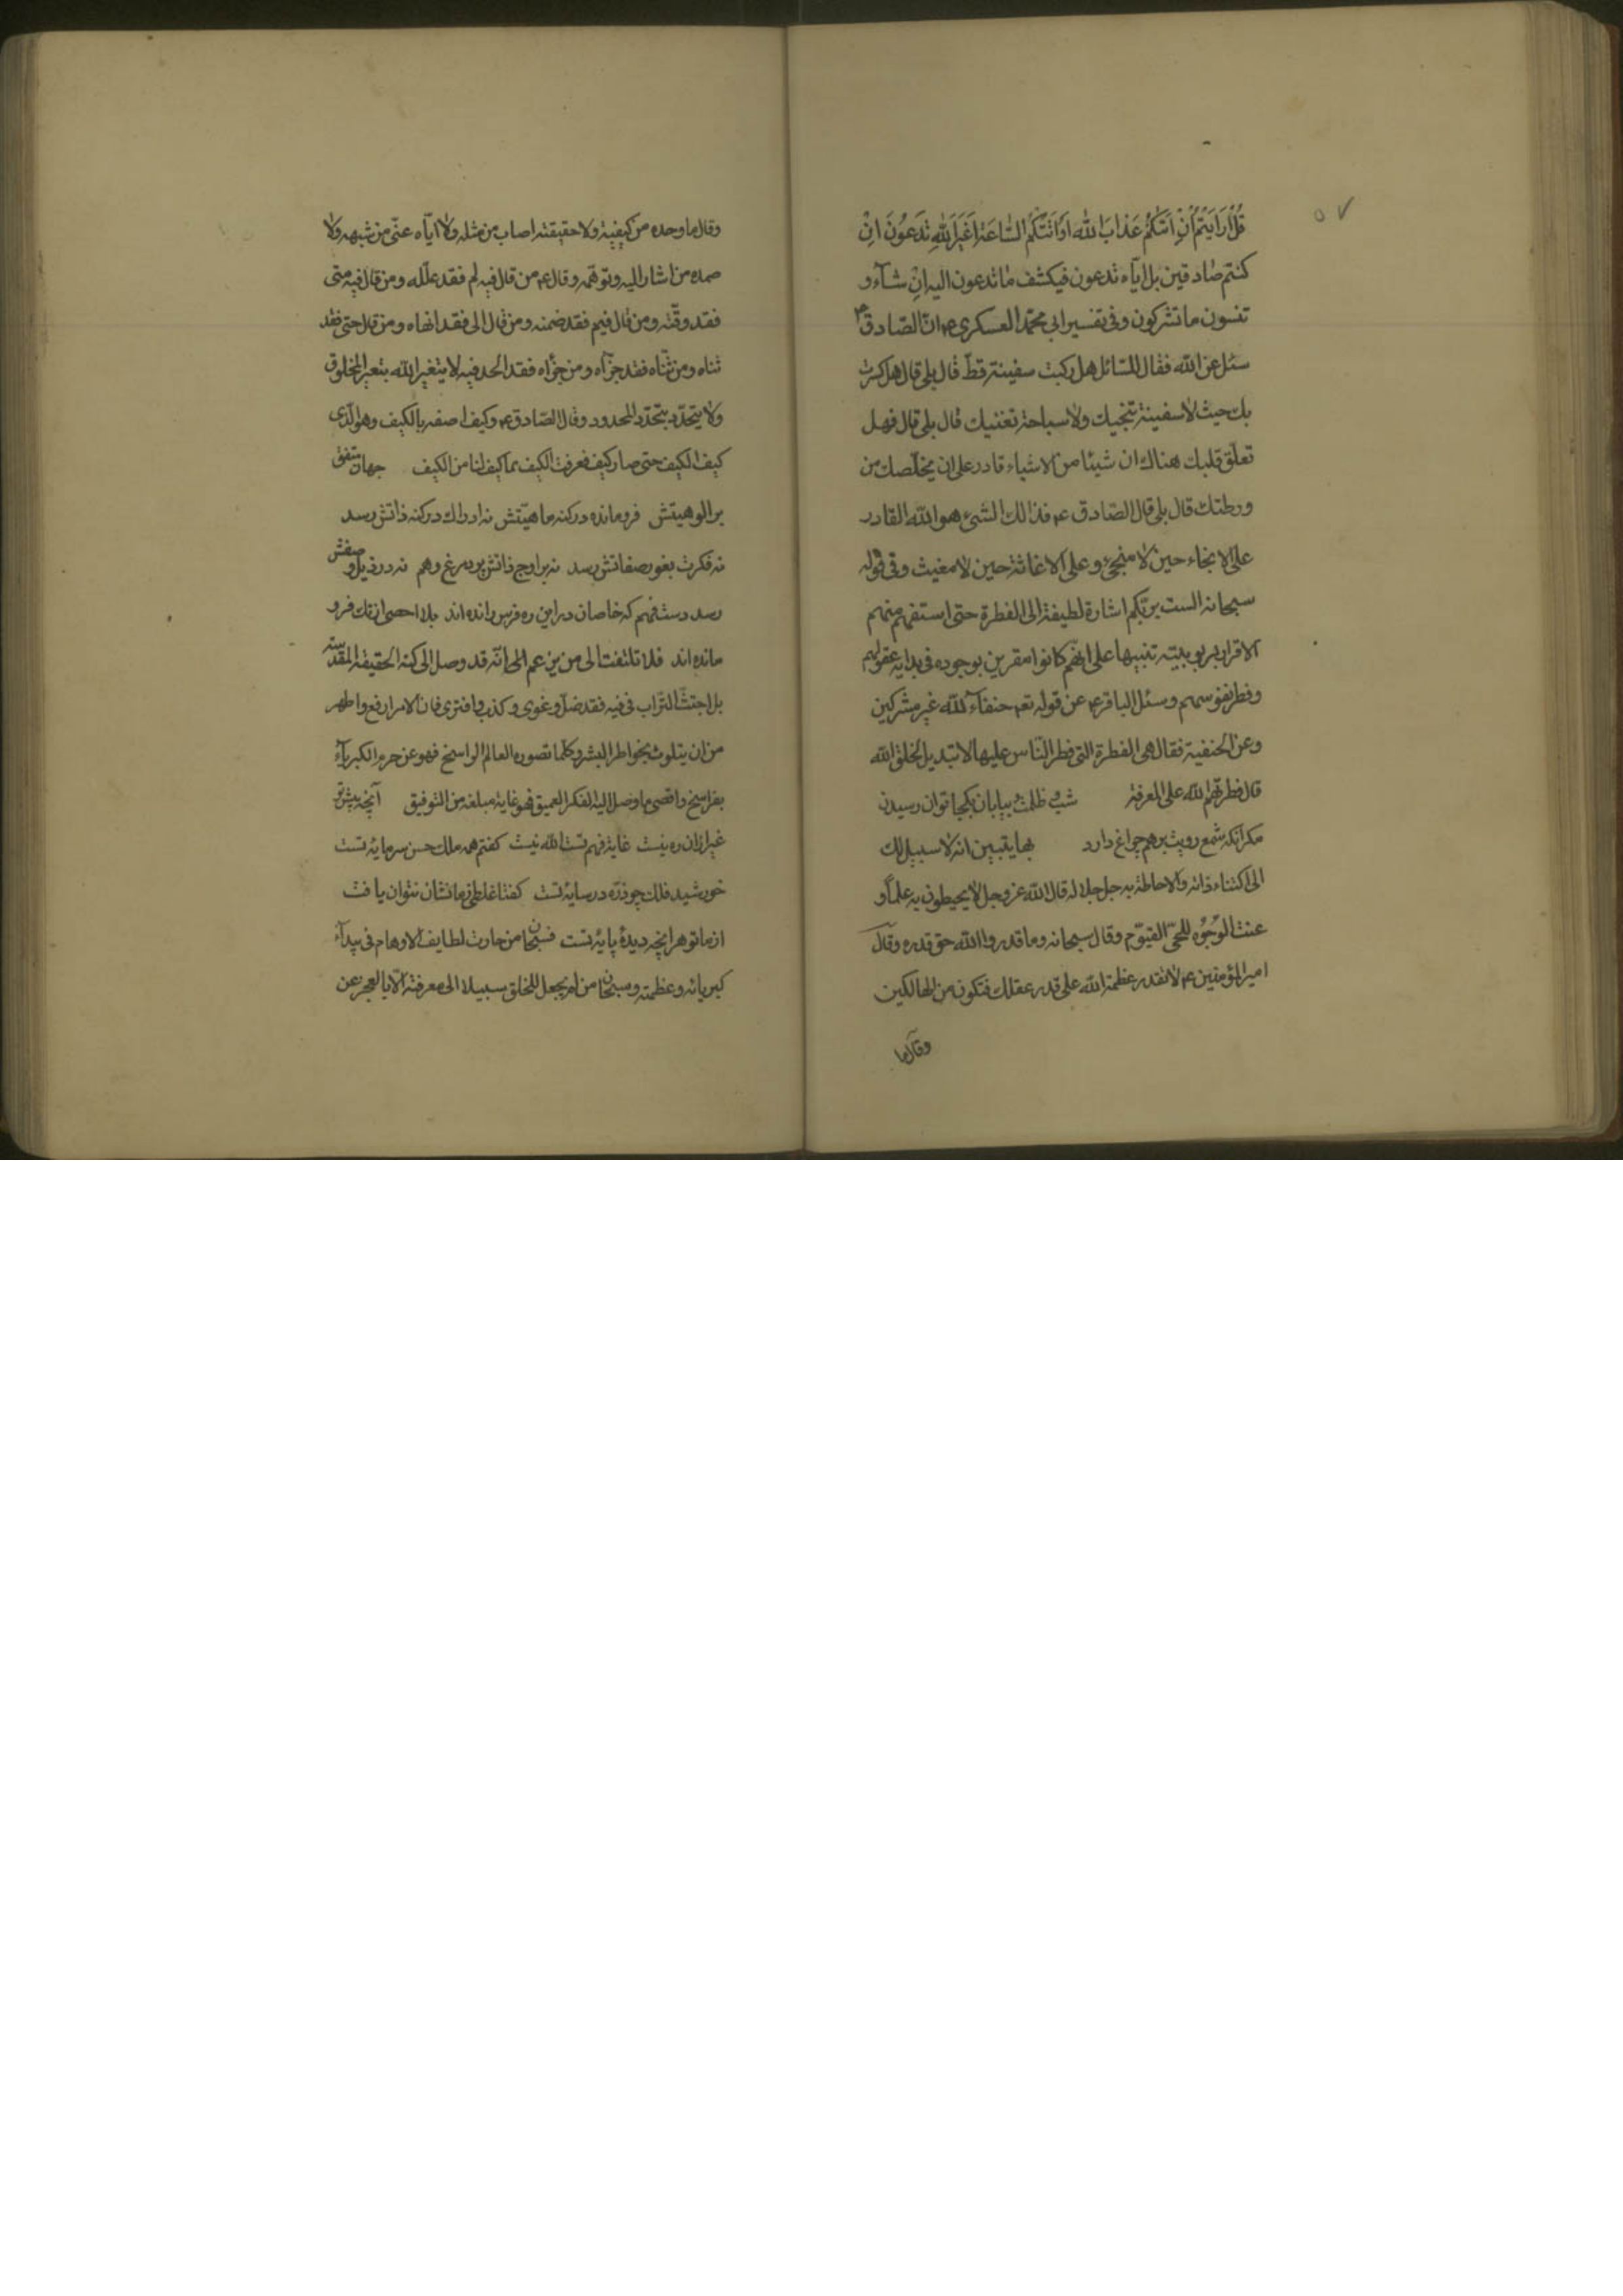 ٥٧
قُلْ اَرَاَيْتَكُمْ اِنْ اَتَٰكُمْ عَذَابُ اللّٰه اَوْ اَتَتْكُمُ السَّاعَة اَغَيْرَ اللّٰهِ تَدْعُونَ اِنْ
كنتم صادقين بل ايّاه تدعون فيكشف ما تدعون اليه ان شآء و
تنسون ما تشركون وفى تفسير ابى محمّد العسكرى ع انّ الصّادق ع
سئل عن اللّه فقال للسّائل هل ركبت سفينة قطّ قال بلى قال هل كسرت
بك حيث لا سفينة تنجيك ولا سباحة تغنيك قال بلى قال فهل
تعلّق قلبك هناك ان شيئا من الاشياء قادر على ان يخلّصك من
ورطتك قال بلى قال الصّادق ع فذالك الشىء هو اللّه القادر
على الانجاء حين لا منجى و على الاغاثة حين لا مغيث وفى قوله
سبحانه الست بربّكم اشارة لطيفة الى الفطرة حتى استفهم منهم
الاقرار بربوبيّته تنبيها على انهّم كانوا مقرين بوجوده فى بداية عقولهم
وفطر نفوسهم وسئل الباقر ع عن قوله تعم حنفآء للّه غير مشركين
وعن الحنفية فقال هى الفطرة التى فطر النّاس عليها لا تبديل لخلق اللّه
قال فطرهم اللّه على المعرفة شب ظلمت و بيابان بكجا توان رسيدن
مكر آنكه شمع رويت برهم چراغ دارد بها يتبيين انه لا سبيل لك
الى اكتناه ذاته والاحاطة به جل جلاله قال اللّه عز وجل لا يحيطون به علمًا و
عنت الوُجُوه للحىّ القيّوم وقال سبحانه وما قدروا اللّه حق قدره وقال
امير المؤمنين ع لا تقدر عظمة اللّه على قدر عقلك فتكون من الهالكين
وقال ما
وقال ما وحده من كيفيه ولا حقيقته اصاب من مثله ولا ايّاه عنى من شبهه ولا
صمده من اشار اليه وتوهّمه وقال ع من قال فيه لم فقد علّله ومن قال فيه متى
فقد وقّته ومن قال فيم فقد ضمنه ومن قال الى فقد انهاه ومن قال حتى فقد
ثناه ومن ثنّاه فقد جزّاه ومن جزّاه فقد الحد فيه لا يتغير اللّه بتغير المخلوق
ولا يتحدّد بتحدّد المحدود وقال الصّادق ع وكيف اصفه بالكيف وهو الّذى
كيف الكيف حتى صار كيف فعرفت الكيف بما كيف لنا من الكيف جهان متفق
بر الوهيتش فرو مانده در كنه ماهيّتش نه ادراك در كنه ذاتش رسد
نه فكرت بغور صفاتش رسد نه بر اوج ذاتش پرد مرغ وهم نه در ذيل وصفش
رسد دست فهم كه خاصان در اين ره فرس رانده اند بلا احصى از تك فرو
مانده اند فلا تلتفت الى من يزعم الى انّه قد وصل الى كنه الحقيقة المقدّسة
بل اجتث التّراب فى فيه فقد ضلّ و غوى و كذب و افترى فان الامر ارفع واطهر
من ان يتلوث بخواطر البشر و كلما تصوره العالم الراسخ فهو عن حرم الكبرياء
بفراسخ واقصى ما وصل اليه الفكر العميق فهو غاية مبلغه من التوفيق آنچه پيش تو
غير ازان ره نيست غاية فهم تست اللّه نيست كفتم همه ملك حسن سرمايهٔ تست
خورشيد فلك چو ذرّه در سايهٔ تست كفتا غلطى ز ما نشان نتوان يافت
از ما تو هرآنچه ديدهٔ پايهٔ تست فسبحان من حارت لطايف الاوهام فى بيدآء
كبريائه و عظمته وسبحان من لم يجعل للخلق سبيلا الى معرفته الّا بالعجز عن